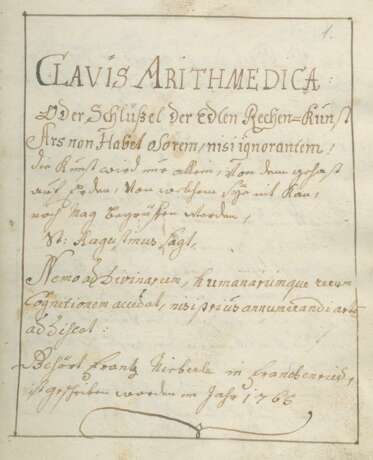 1.
CLAVIS ARITHMEDICA:
Oder Schlüßel der Edlen Rechen=Kunst
Ars non Habet osorem, nisi ignorantem,
die Kunst wird nur allein, von dem gehast
auf Erden, von welchem sye nit kan,
noch mag begriffen werden,
St: Augustinus sagt,
Nemo ad Divinarum, humanarumque rerum
Cognitionem accedat, nisi prius annumerandi artem
adiscat:
Gehört Frantz in
ist geschriben worden im Jahr 1766